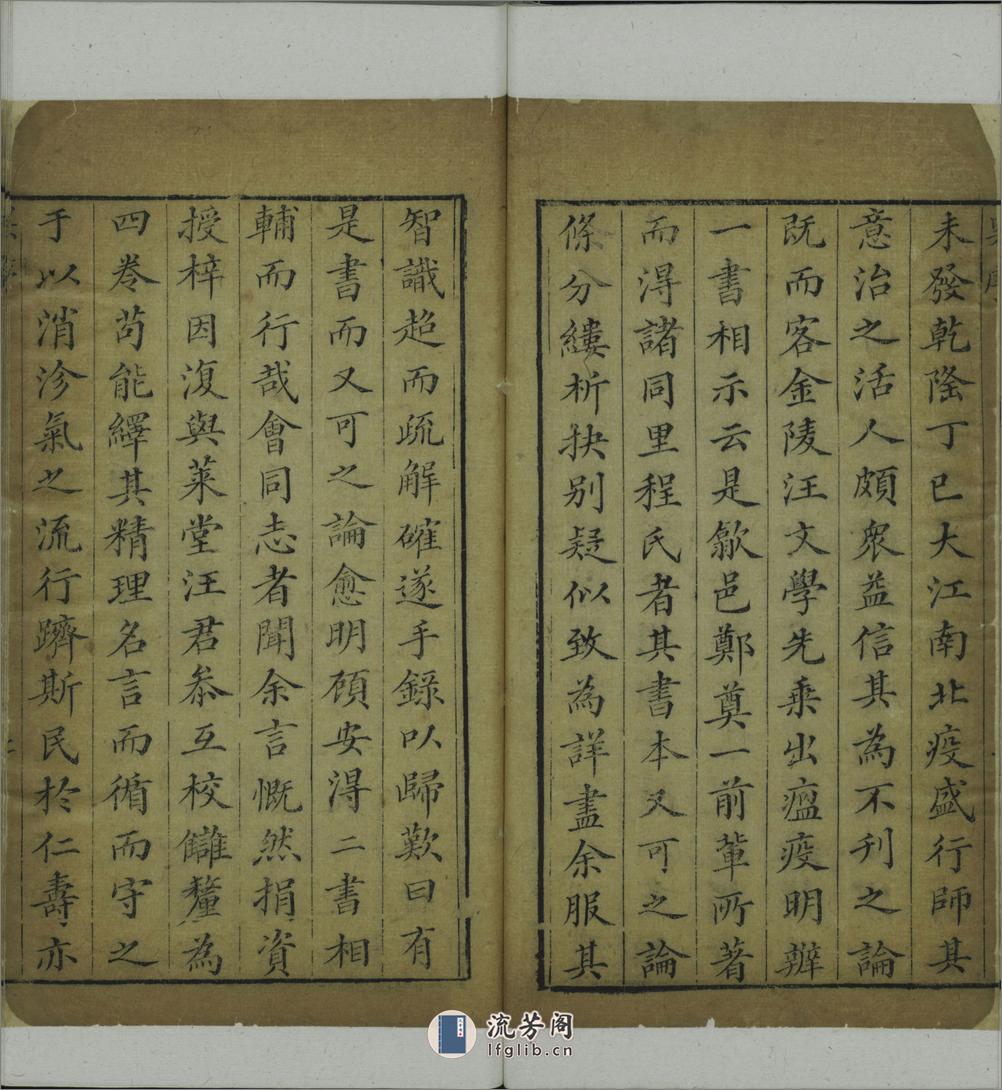 未發乾隆丁巳大江南北疫盛行師其
意治之活人頗衆益信其為不刊之論
既而客金陵汪文學先乘出瘟疫明辨
一書相示云是歙邑鄭奠一前輩所著
而得諸同里程氏者其書本又可之論
條分縷析抉别疑似致為詳盡余服其
智識超而疏解確遂手錄以歸歎曰有
是書而又可之論愈明顧安得二書相
輔而行哉會同志者聞余言慨然捐資
授梓因復與萊堂汪君叅互校讎釐為
四卷苟能繹其精理名言而循而守之
于以消沴氣之流行躋斯民於仁壽亦
流芳阁
lfglib.cn